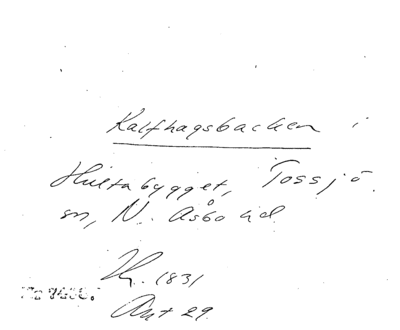 Kalfhagsbacken i
Hultabygget, Tossjö
sn, N. Åsbo hd
1831
Ant 29